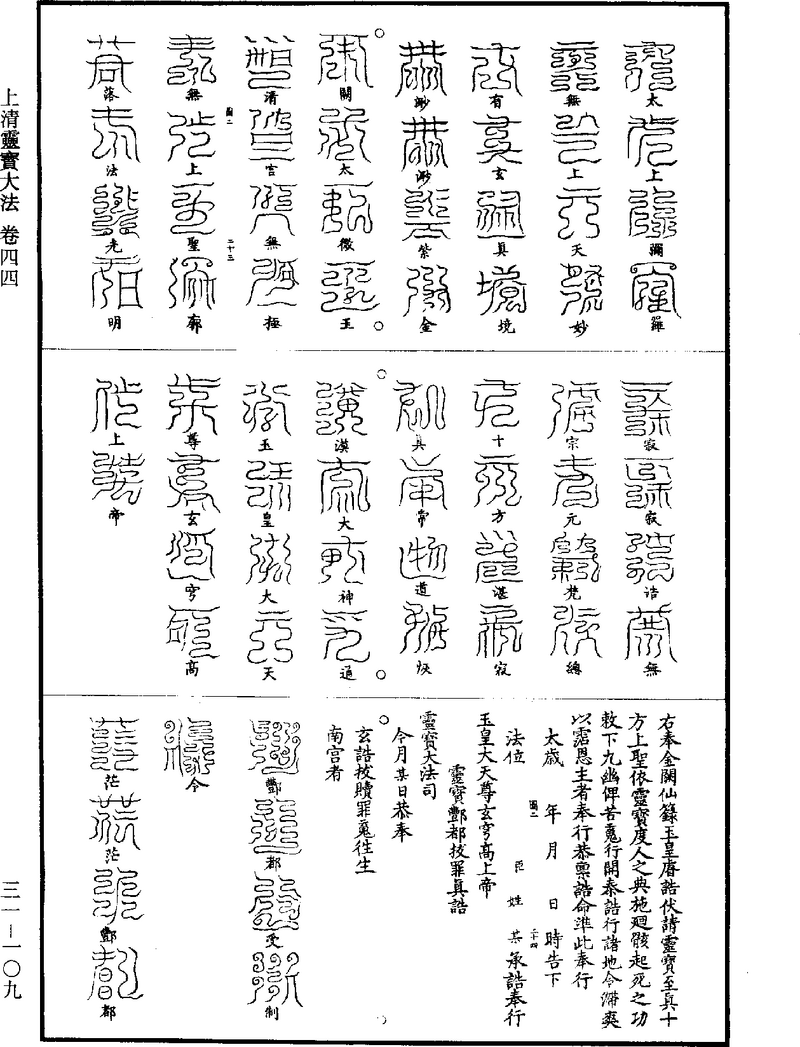 上清靈寶大法 卷四四
三一－一〇九
太上彌羅
無上天妙
有玄真境
渺渺紫金
闕太微玉
清宮無極
無上聖廓
落法光明
寂寂誥無
宗元梵總
十方湛寂
真常道恢
漠大神通
玉皇大天
尊玄穹高
上帝
右奉金闕仙籙玉皇膺誥伏請靈寶至真十
方上聖依靈寶度人之典施迴骸起死之功
敕下九幽俾苦䰟行開泰誥行諸地令滯爽
以霑恩主者奉行恭禀誥命準此奉行
太歲 年 月 日 時告下
法位 臣 姓 某承誥奉行
玉皇大天尊玄穹高上帝
靈寶酆都拔罪真誥
靈寶大法司
今月某日恭奉
玄誥拔贖罪䰟往生
南宮者
酆都受制
令
茫茫酆都